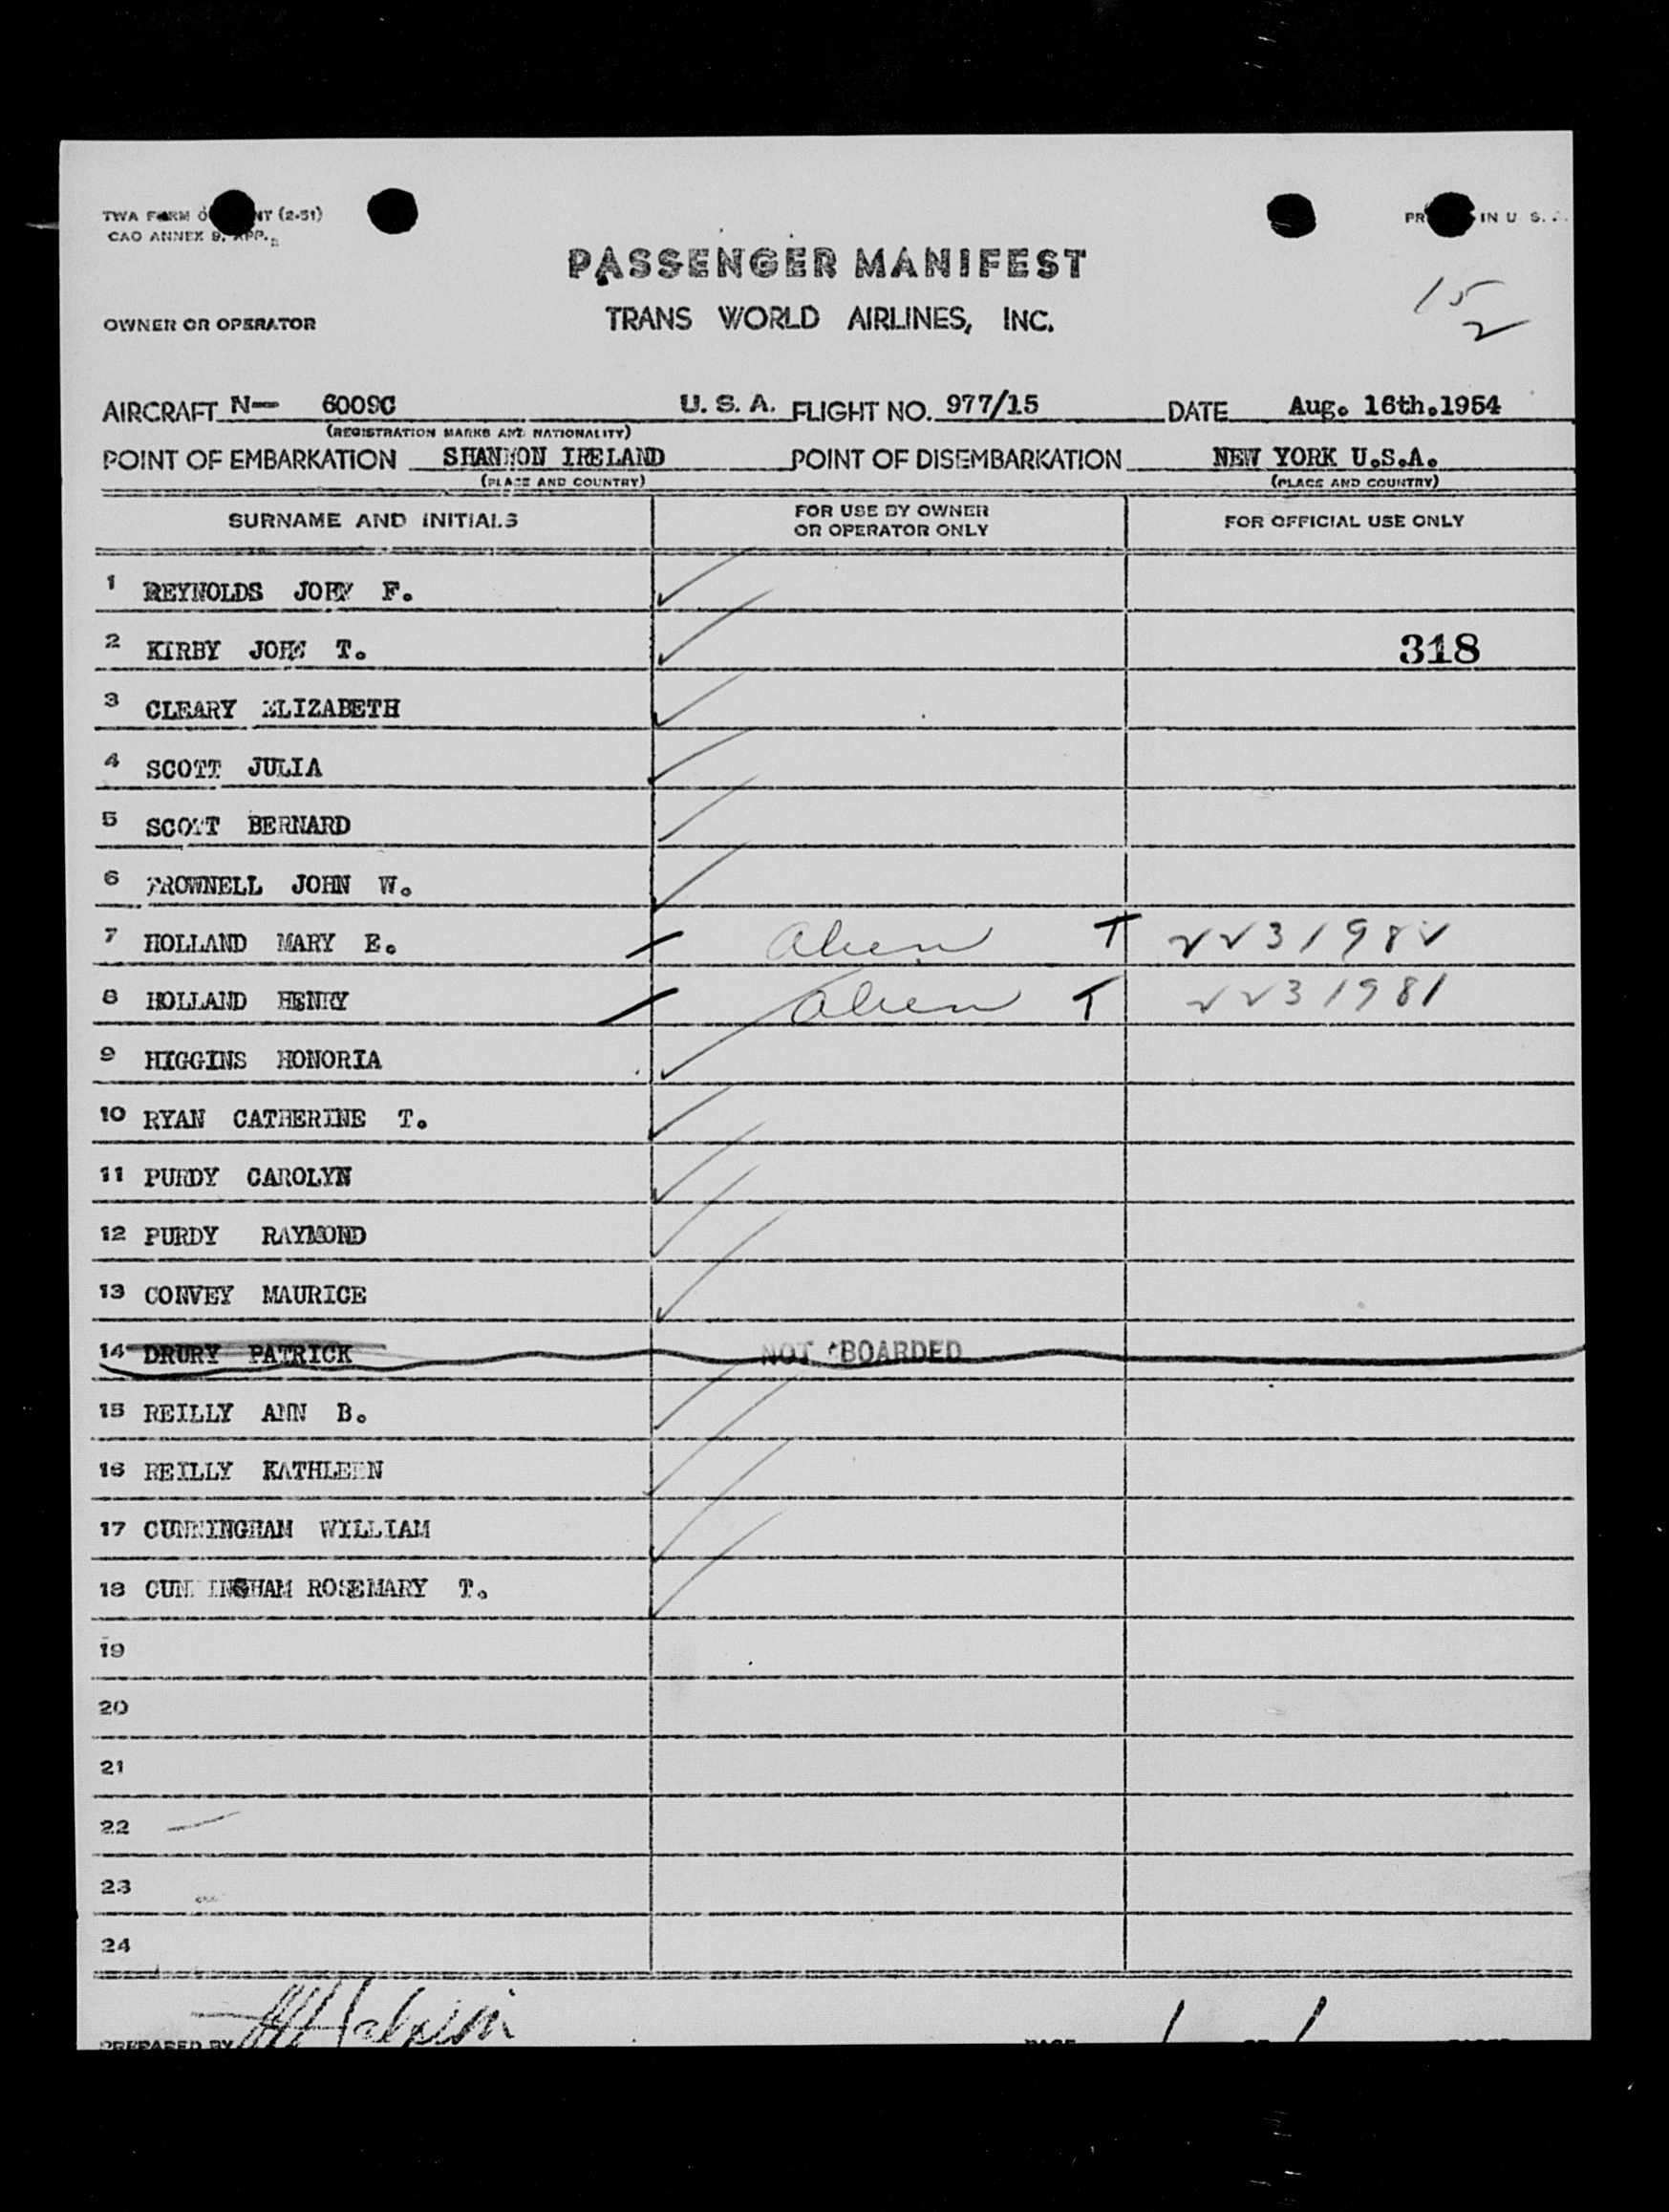 TWA FORM (2-51)
CAO ANNEX 9, APP.
IN U S.
PASSENGER MANIFEST
15
2
OWNER OR OPERATOR TRANS WORLD AIRLINES, INC.
AIRCRAFT N- 6009C U.S.A. FLIGHT NO. 977/15 DATE Aug. 16th.1954
(REGISTRATION MARKS AND NATIONALITY)
POINT OF EMBARKATION SHANNON IRELAND POINT OF DISEMBARKATION NEW YORK U.S.A.
(PLACE AND COUNTRY) (PLACE AND COUNTRY)
SURNAME AND INITIALS FOR USE BY OWNER OR OPERATOR ONLY FOR OFFICIAL USE ONLY
1 REYNOLDS JOHN F.
2 KIRBY JOHN T. 318
3 CLEARY ELIZABETH
4 SCOTT JULIA
5 SCOTT BERNARD
6 BROWNELL JOHN W.
7 HOLLAND MARY E. Alien T 2231982
8 HOLLAND HENRY Alien T 2231981
9 HIGGINS HONORIA
10 RYAN CATHERINE T.
11 PURDY CAROLYN
12 PURDY RAYMOND
13 CONVEY MAURICE
14 DRURY PATRICK NOT BOARDED
15 REILLY ANN B.
16 REILLY KATHLEEN
17 CUNNINGHAM WILLIAM
18 CUNNINGHAM ROSEMARY T.
19
20
21
22
23
24
PREPARED BY PAGE 1 OF 1 PAGES